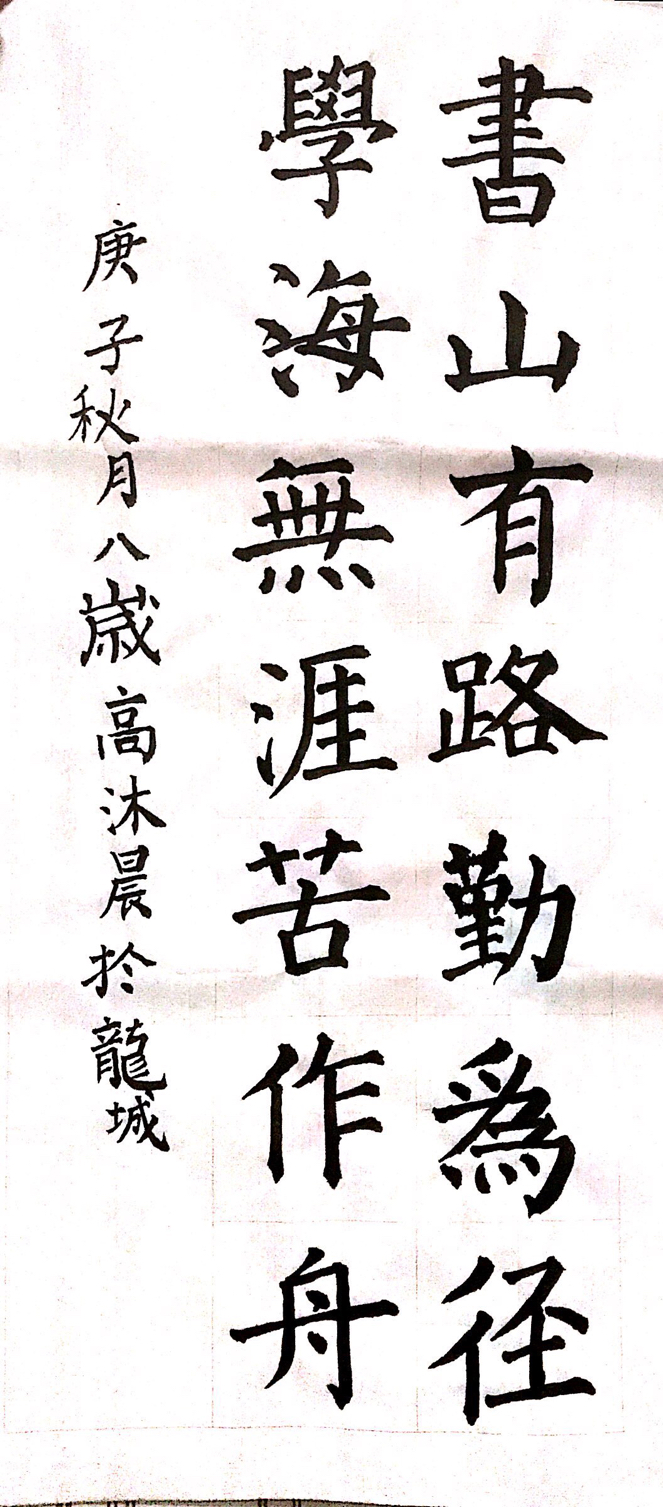 書山有路勤為径
學海無涯苦作舟
庚子秋月八歲高沐晨於龍城